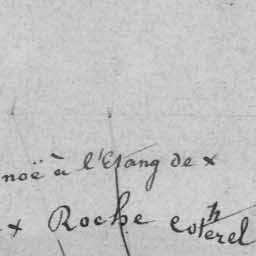 noë à l'Etang de x
x Roche Coterel